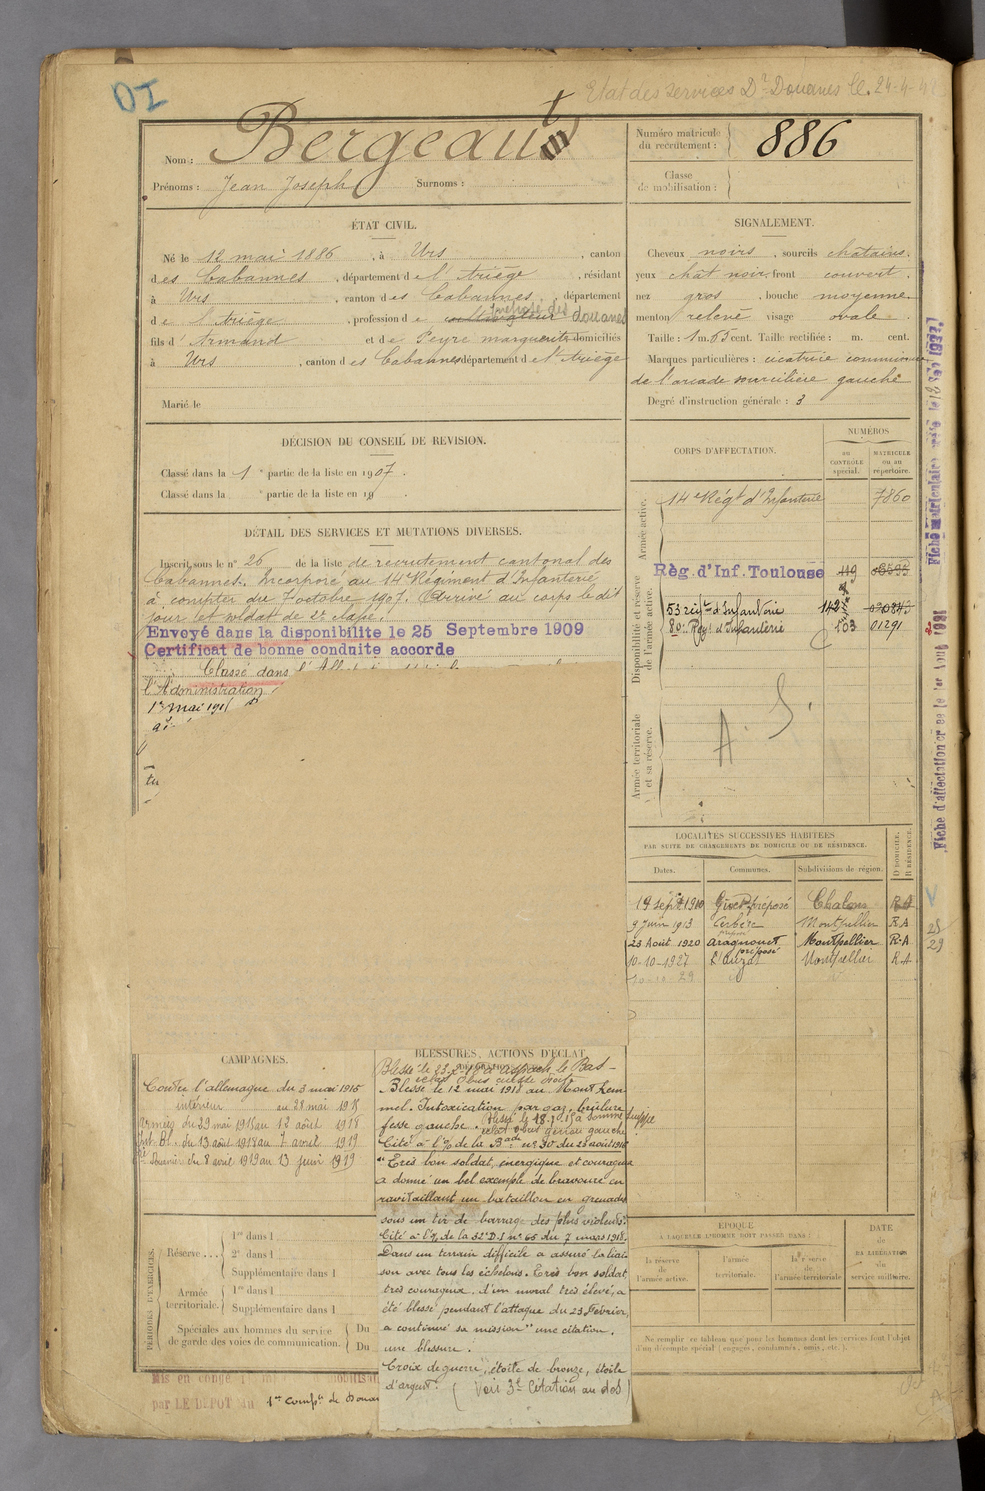 DI
Etat des services Dn Douanes le 24-4-4
Nom : Bergeaut
Prénoms : Jean Joseph Surnoms :
Numéro matricule du recrutement : 886
Classe de mobilisation :
ÉTAT CIVIL.
Né le 12 mai 1886, à Urs, canton
des Cabannes, département de l'Ariège, résidant
à Urs, canton des Cabannes, département
de l'Ariège, profession de cultivateur préposé des douanes
fils d'Armand et de Peyre marguerite domiciliés
à Urs, canton des Cabannes département de l'Ariège
Marié le
SIGNALEMENT.
Cheveux noirs, sourcils châtains.
yeux chat noir, front couvert,
nez gros, bouche moyenne
menton relevé visage ovale
Taille : 1 m. 65 cent. Taille rectifiée : m. cent.
Marques particulières : cicatrice commissure
de l'arcade sourcilière gauche
Degré d'instruction générale : 3
DÉCISION DU CONSEIL DE REVISION.
Classé dans la 1e partie de la liste en 1907.
Classé dans la e partie de la liste en 19 .
DÉTAIL DES SERVICES ET MUTATIONS DIVERSES.
Inscrit sous le n° 26 de la liste de recrutement cantonal des
Cabannes. Incorporé au 14e Régiment d'Infanterie
à compter du 7 octobre 1907. Arrivé au corps le dit
jour et soldat de 2e classe.
Envoyé dans la disponibilite le 25 Septembre 1909
Certificat de bonne conduite accorde
Classé dans l'Aff
l'Administration
1er mai 191
CORPS D'AFFECTATION.
NUMÉROS
au CONTRÔLE spécial.
MATRICULE ou au répertoire.
Armée active.
14e Régt d'Infanterie 7860
Disponibilité et réserve de l'armée active.
Règ. d'Inf. Toulouse 119
53 régt d'Infanterie 142
80e Regt d'Infanterie 103 01291
A. S.
Armée territoriale et sa réserve.
Fiche d'affectation créée le 1er Août 1921
LOCALITÉS SUCCESSIVES HABITÉES
PAR SUITE DE CHANGEMENTS DE DOMICILE OU DE RÉSIDENCE.
Dates. Communes. Subdivisions de région. D DOMICILE. R RÉSIDENCE.
19 sept 1910 Givet préposé Châlons
9 Juin 1913 Cerbère Montpellier R.A
23 Août 1920 Aragnouet Montpellier R.A
10-10-1927 L'Auzat préposé Montpellier R.A
10-10-29
25
29
CAMPAGNES.
Contre l'allemagne du 3 mai 1915
intérieur au 28 mai 1915
armées du 29 mai 1915 au 12 août 1918
Int. Bl. du 13 août 1918 au 7 avril 1919
du 8 avril 1919 au 13 juin 1919
BLESSURES, ACTIONS D'ÉCLAT,
Blessé le 23.2.18 à Aspach le Bas
éclat d'obus cuisse droite
Blessé le 12 mai 1918 au Mont Kem
mel. Intoxication par gaz, brûlure
fesse gauche. Blessé le 18.7.15 à Somme Suippe
éclat obus genou gauche
Cité à l'O/ de la Bade n° 30 du 28 août 1916
"Très bon soldat, énergique et courageux
a donné un bel exemple de bravoure en
ravitaillant un bataillon en grenades
sous un tir de barrage des plus violents."
Cité à l'O/ de la 52e D.I n° 65 du 7 mars 1918.
Dans un terrain difficile a assuré la liai-
son avec tous les échelons. Très bon soldat,
très courageux, d'un moral très élevé, a
été blessé pendant l'attaque du 23 Février,
a continué sa mission" une citation.
une blessure.
Croix de guerre, étoile de bronze, étoile
d'argent. (Voir 3e Citation au dos)
PÉRIODES D'EXERCICES.
Réserve....
1re dans l
2e dans l
Supplémentaire dans l
Armée territoriale.
1re dans l
Supplémentaire dans l
Spéciales aux hommes du service
de garde des voies de communication.
Du
Du
ÉPOQUE
À LAQUELLE L'HOMME DOIT PASSER DANS :
la réserve de l'armée active.
l'armée territoriale.
la réserve de l'armée territoriale
DATE de LA LIBÉRATION du service militaire.
Ne remplir ce tableau que pour les hommes dont les services font l'objet
d'un décompte spécial (engagés, condamnés, omis, etc.).
Mis en congé
par LE DÉPOT du 1re Compie de Douan